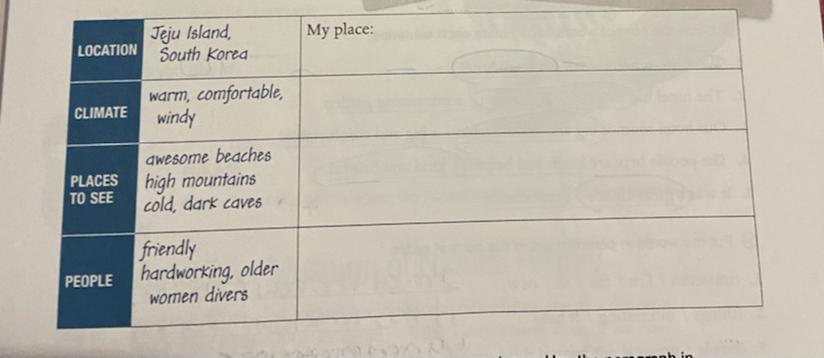 LOCATION
Jeju Island,
South Korea
My place:
CLIMATE
warm, comfortable,
windy
PLACES
TO SEE
awesome beaches
high mountains
cold, dark caves
PEOPLE
friendly
hardworking, older
women divers